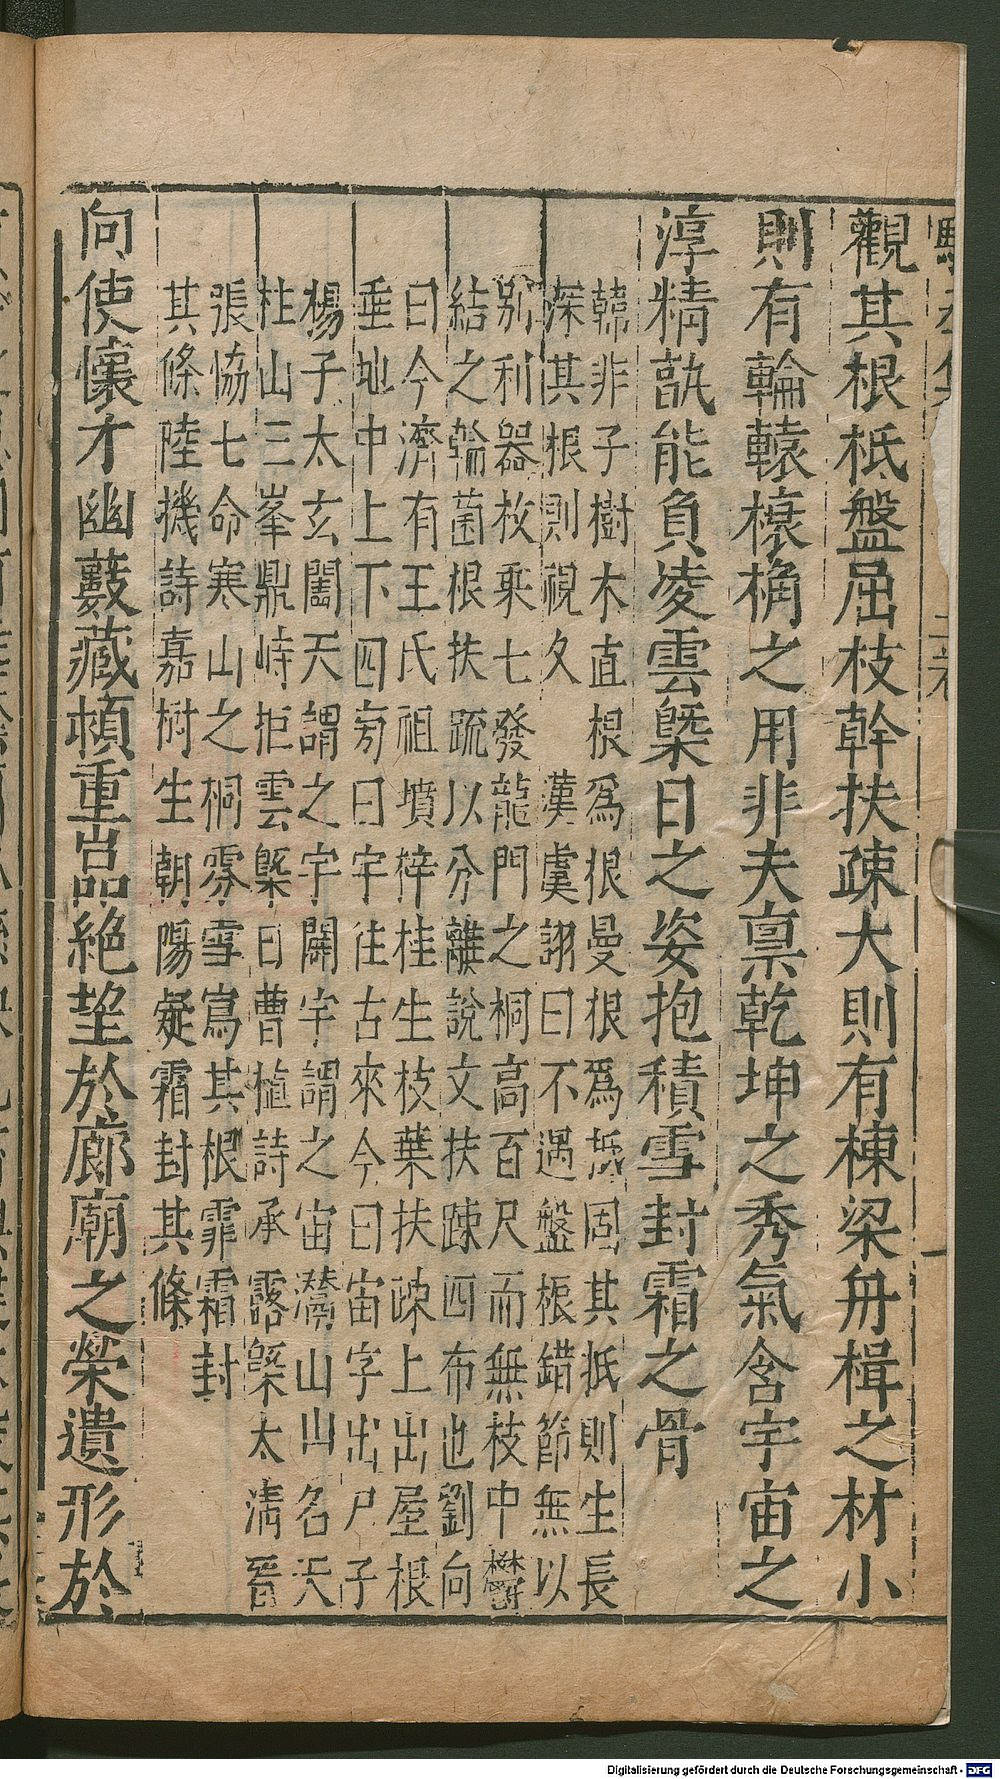 觀其根柢盤屈枝幹扶疎大則有棟梁舟楫之材小
則有輪轅榱桷之用非夫禀乾坤之秀氣含宇宙之
淳精孰能負凌雲槩日之姿抱積雪封霜之骨
韓非子樹木直根爲根曼根爲柢固其柢則生長
深其根則視久　漢虞詡曰不遇盤根錯節無以
別利器枚乘七發龍門之桐高百尺而無枝中欝
結之輪菌根扶疏以分離說文扶疎四布也劉向
曰今濟有王氏祖墳梓桂生枝葉扶疎上出屋根
垂地中上下四方曰宇往古來今曰宙字出尸子
楊子太玄闔天謂之宇闢宇謂之宙灊山山名天
柱山三峯鼎峙拒雲槩日曹植詩承露槩太淸晉
張協七命寒山之桐雰雪寫其根霏霜封
其條陸機詩嘉樹生朝陽凝霜封其條
向使懷才幽藪藏頓重嵒絶望於廊廟之榮遺形於
Digitalisierung gefördert durch die Deutsche Forschungsgemeinschaft - DFG